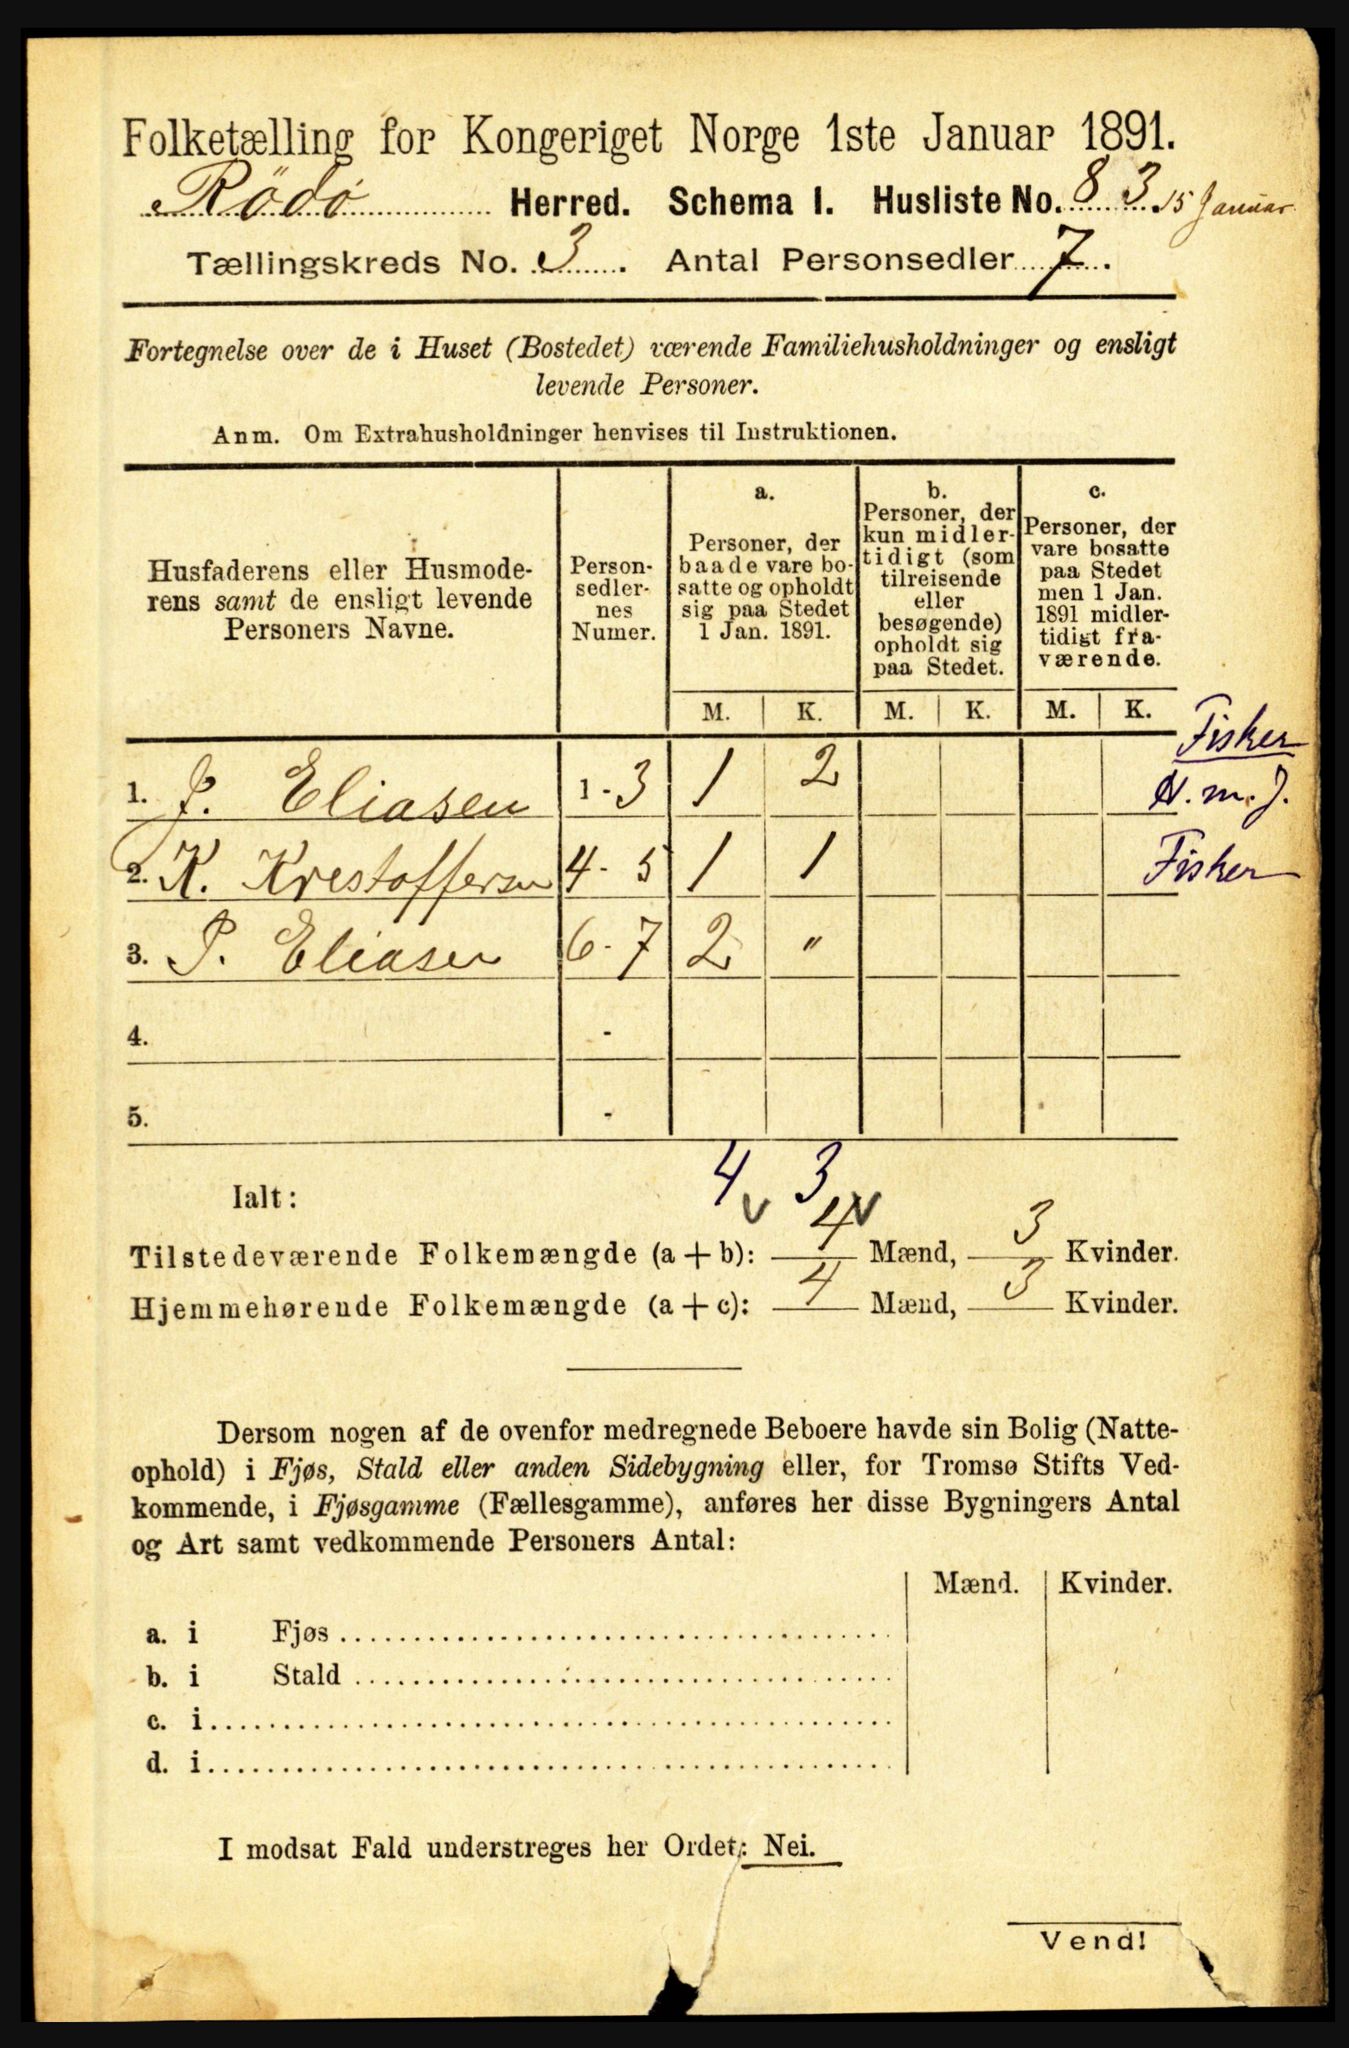 Folketælling for Kongeriget Norge 1ste Januar 1891.
Rödö Herred. Schema I. Husliste No. 83 15 Januar
Tællingskreds No. 3. Antal Personsedler 7.
Fortegnelse over de i Huset (Bostedet) værende Familiehusholdninger og ensligt
levende Personer.
Anm. Om Extrahusholdninger henvises til Instruktionen.
Husfaderens eller Husmode-
rens samt de ensligt levende
Personers Navne.
Person-
sedler-
nes
Numer.
a.
Personer, der
baade vare bo-
satte og opholdt
sig paa Stedet
1 Jan. 1891.
b.
Personer, der
kun midler-
tidigt (som
tilreisende
eller
besøgende)
opholdt sig
paa Stedet.
c.
Personer, der
vare bosatte
paa Stedet
men 1 Jan.
1891 midler-
tidigt fra-
værende.
M. K. M. K. M. K.
Fisker
1. J. Eliasen 1-3 1 2 H. m. J.
2. K. Krestoffersen 4-5 1 1 Fisker
3. P. Eliasen 6-7 2 "
4. -
5. -
4 3
Ialt:
Tilstedeværende Folkemængde (a + b): 4 Mænd, 3 Kvinder.
Hjemmehørende Folkemængde (a + c): 4 Mænd, 3 Kvinder.
Dersom nogen af de ovenfor medregnede Beboere havde sin Bolig (Natte-
ophold) i Fjøs, Stald eller anden Sidebygning eller, for Tromsø Stifts Ved-
kommende, i Fjøsgamme (Fællesgamme), anføres her disse Bygningers Antal
og Art samt vedkommende Personers Antal:
Mænd. Kvinder.
a. i Fjøs
b. i Stald
c. i
d. i
I modsat Fald understreges her Ordet: Nei.
Vend!